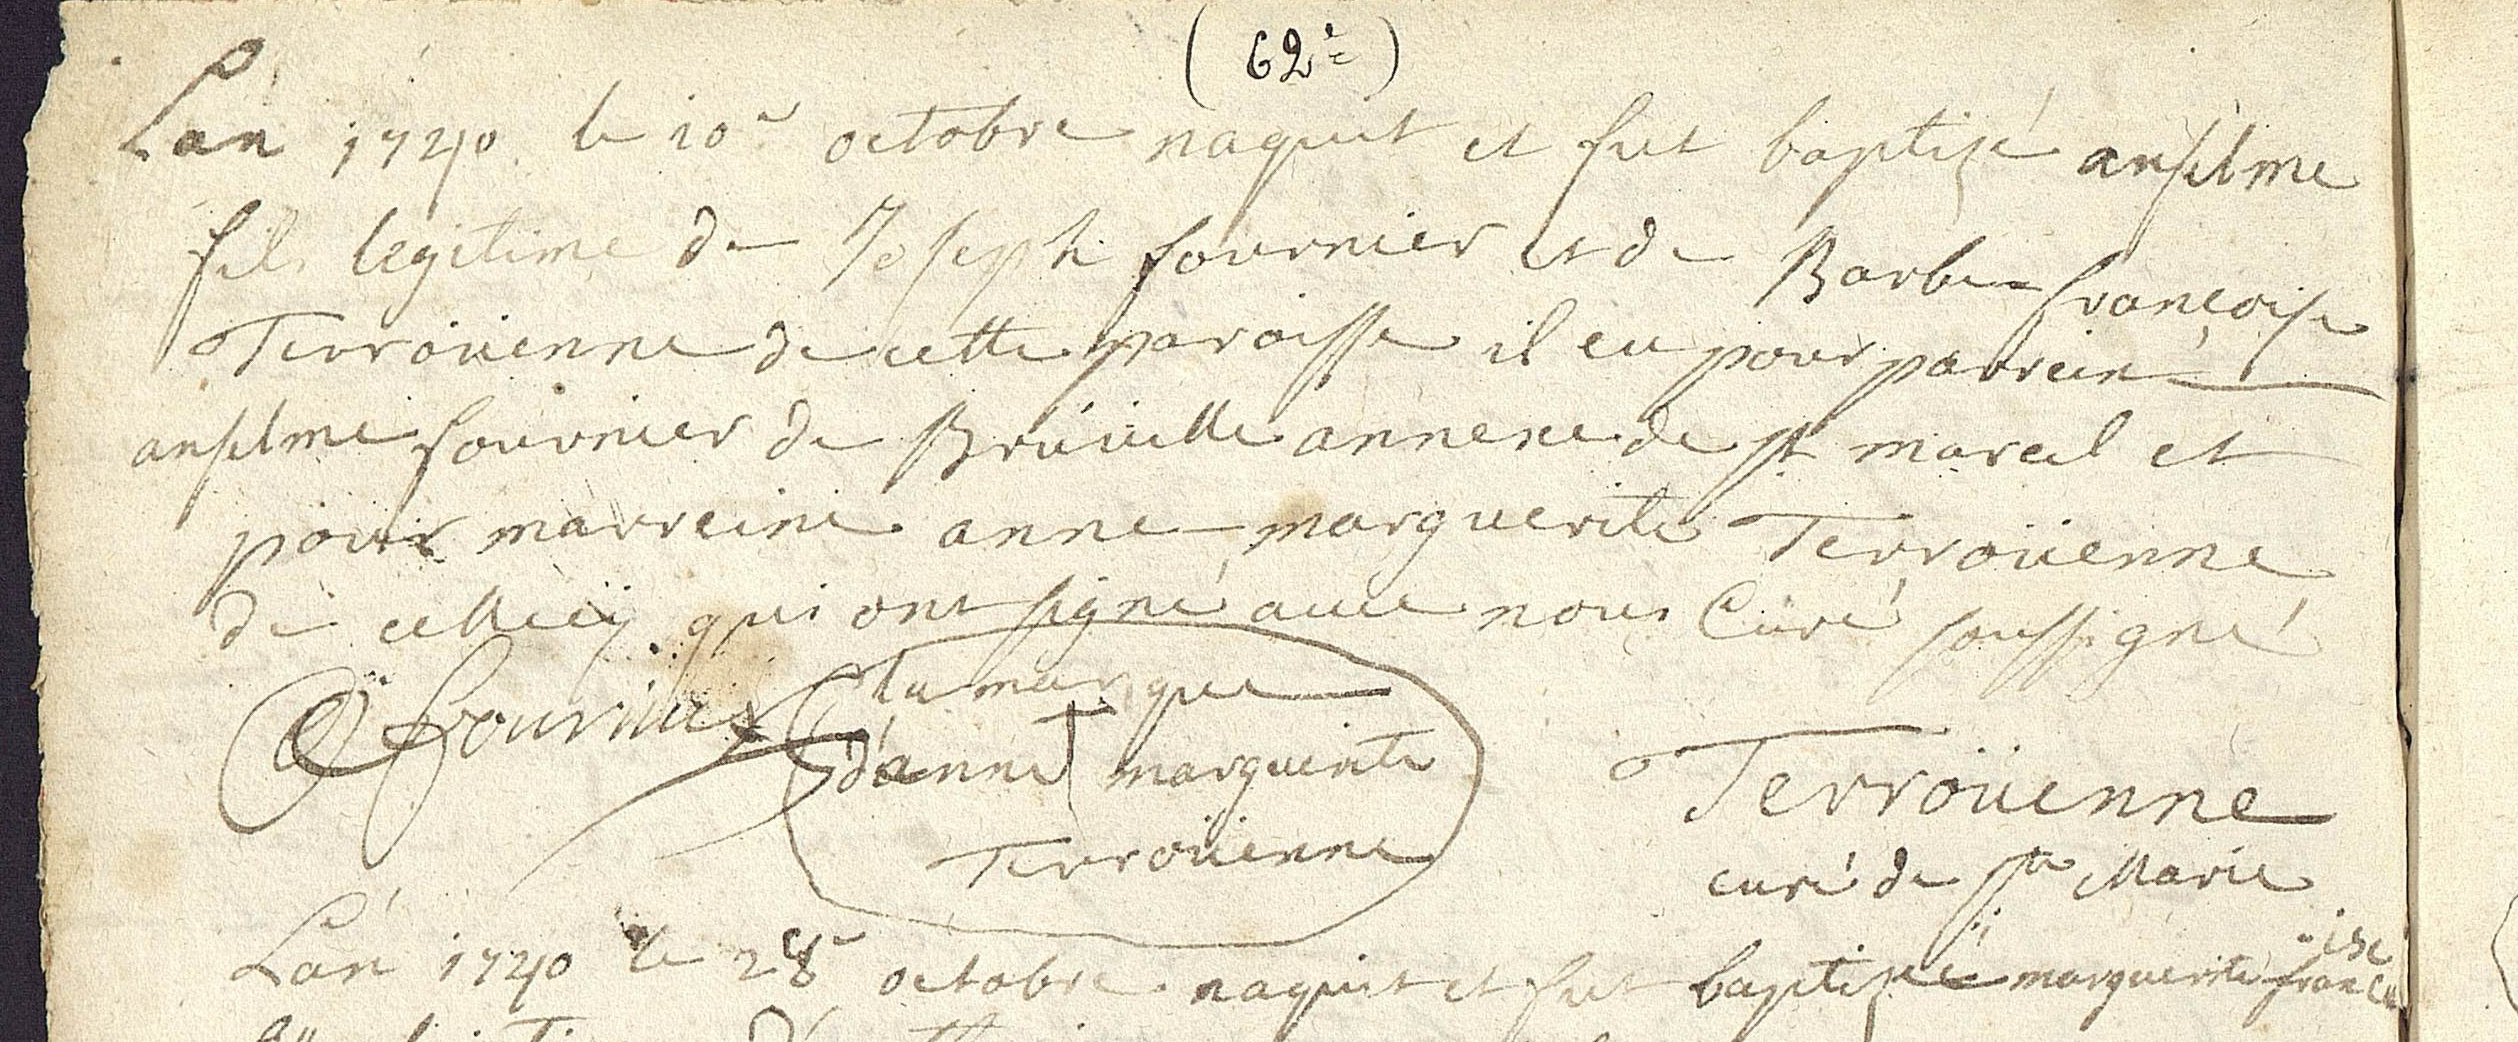 (62e)
L'an 1740 le 10e octobre naquit et fut baptizé anselme
fils legitime de Joseph fournier et de Barbe françoise
Terroüenne de cette paroisse il eu pour parrein
anselme fournier de Brüville annexe de st marcel et
pour marreine anne marguerite Terroüenne
de celle cÿ qui ont signé avec nous Curé soussigné
fournier
la marque
d'anne marguerite
Terroüenne
Terroüenne
curé de ste Marie
L'an 1740 le 28e octobre naquit et fut baptizée marguerite françoise